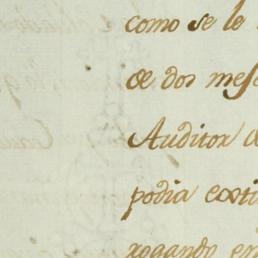 como se le
de dos mese
Auditor d
podia exti
rogando en